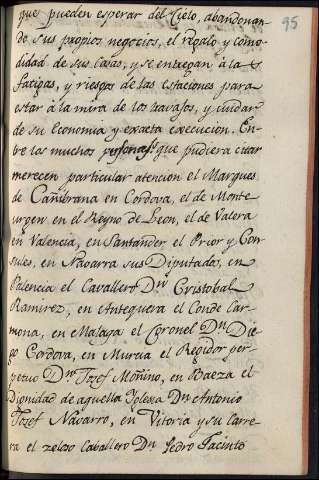 que pueden esperar del Cielo, abandonan- 95
do sus propios negocios, el regalo y como-
didad de sus Casas, y se entregan à las
fatigas, y riesgos de las Estaciones para
estar à la mira de los travajos, y cuidar
de su Economia y exacta execucion. En-
tre los muchos personages que pudiera citar
merecen particular atencion el Marques
de Cañibrana en Cordova, el de Monte
urgen en el Reyno de Leon, el de Valera
en Valencia, en Santander el Prior y Con
sules, en Navarra sus Diputada, en
Palencia el Cavallero Dn Cristobal
Ramirez, en Antequera el Conde Car-
mona, en Malaga el Coronel Dn Die-
go Cordova, en Murcia el Regidor per-
petuo Dn Josef Moñino, en Baeza el
Dignidad de aquella Iglesia Dn Antonio
Josef Navarro, en Vitoria y su Carre-
ra el zeloso Cavallero Dn Pedro Jacinto